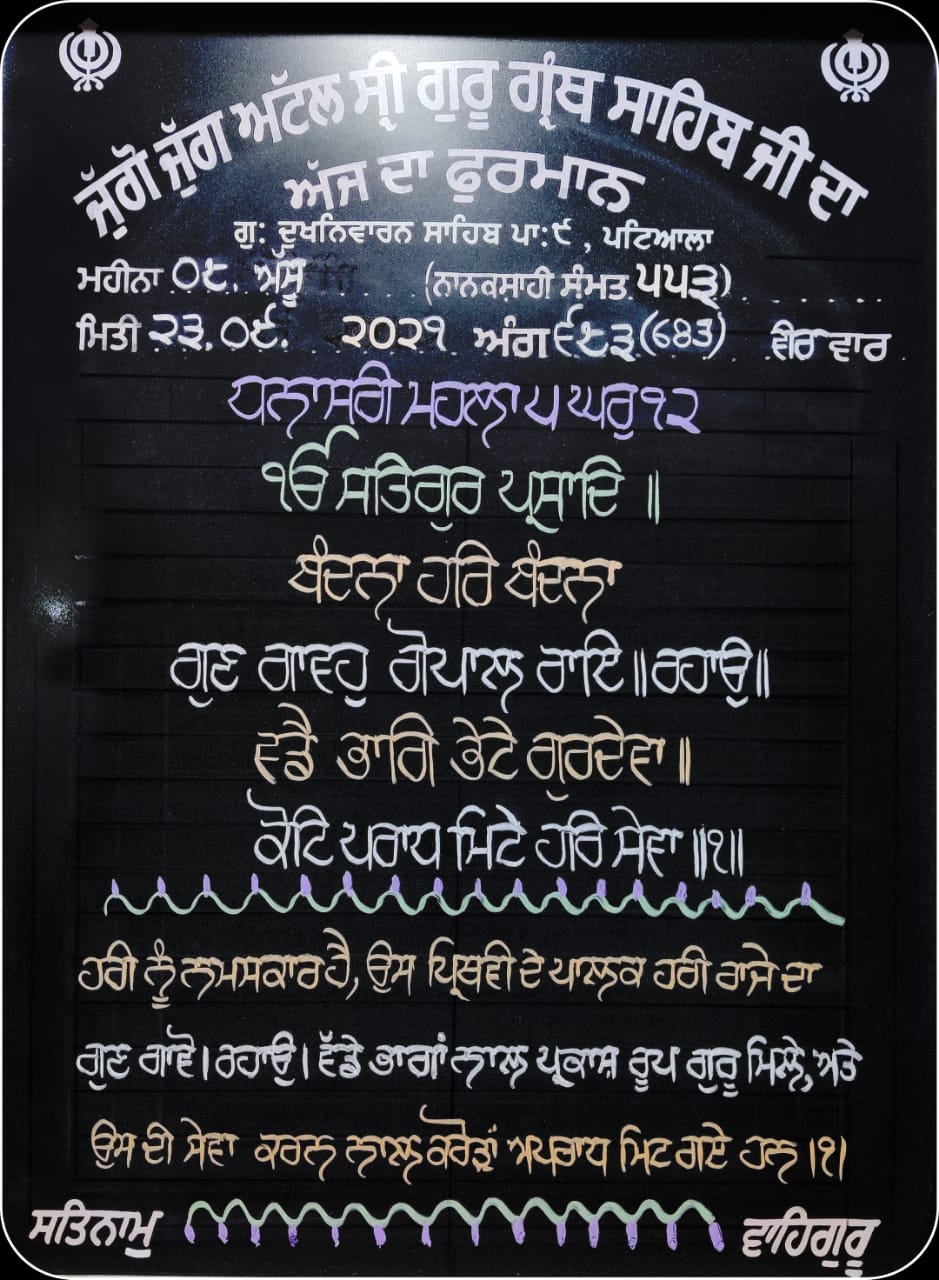 ਜੁੱਗੋ ਜੁੱਗ ਅਟੱਲ ਸ੍ਰੀ ਗੁਰੂ ਗ੍ਰੰਥ ਸਾਹਿਬ ਜੀ ਦਾ
ਅੱਜ ਦਾ ਫੁਰਮਾਨ
ਗੁ: ਦੁਖਨਿਵਾਰਨ ਸਾਹਿਬ ਪਾ:੯ , ਪਟਿਆਲਾ
ਮਹੀਨਾ ੦੮. ਅੱਸੂ (ਨਾਨਕਸ਼ਾਹੀ ਸੰਮਤ ੫੫੩)
ਮਿਤੀ ੨੩.੦੯. ੨੦੨੧ ਅੰਗ ੬੮੩(683) ਵੀਰ ਵਾਰ
ਧਨਾਸਰੀ ਮਹਲਾ ੫ ਘਰੁ ੧੨
ੴ ਸਤਿਗੁਰ ਪ੍ਰਸਾਦਿ ॥
ਬੰਦਨਾ ਹਰਿ ਬੰਦਨਾ
ਗੁਣ ਗਾਵਹੁ ਗੋਪਾਲ ਰਾਇ॥ਰਹਾਉ॥
ਵਡੈ ਭਾਗਿ ਭੇਟੇ ਗੁਰਦੇਵਾ॥
ਕੋਟਿ ਪਰਾਧ ਮਿਟੇ ਹਰਿ ਸੇਵਾ॥੧॥
ਹਰੀ ਨੂੰ ਨਮਸਕਾਰ ਹੈ, ਉਸ ਪ੍ਰਿਥਵੀ ਦੇ ਪਾਲਕ ਹਰੀ ਰਾਜੇ ਦਾ
ਗੁਣ ਗਾਵੋ।ਰਹਾਉ।ਵੱਡੇ ਭਾਗਾਂ ਨਾਲ ਪ੍ਰਕਾਸ਼ ਰੂਪ ਗੁਰੂ ਮਿਲੇ, ਅਤੇ
ਉਸ ਦੀ ਸੇਵਾ ਕਰਨ ਨਾਲ ਕਰੋੜਾਂ ਅਪਰਾਧ ਮਿਟ ਗਏ ਹਨ।੧।
ਸਤਿਨਾਮੁ ਵਾਹਿਗੁਰੂ